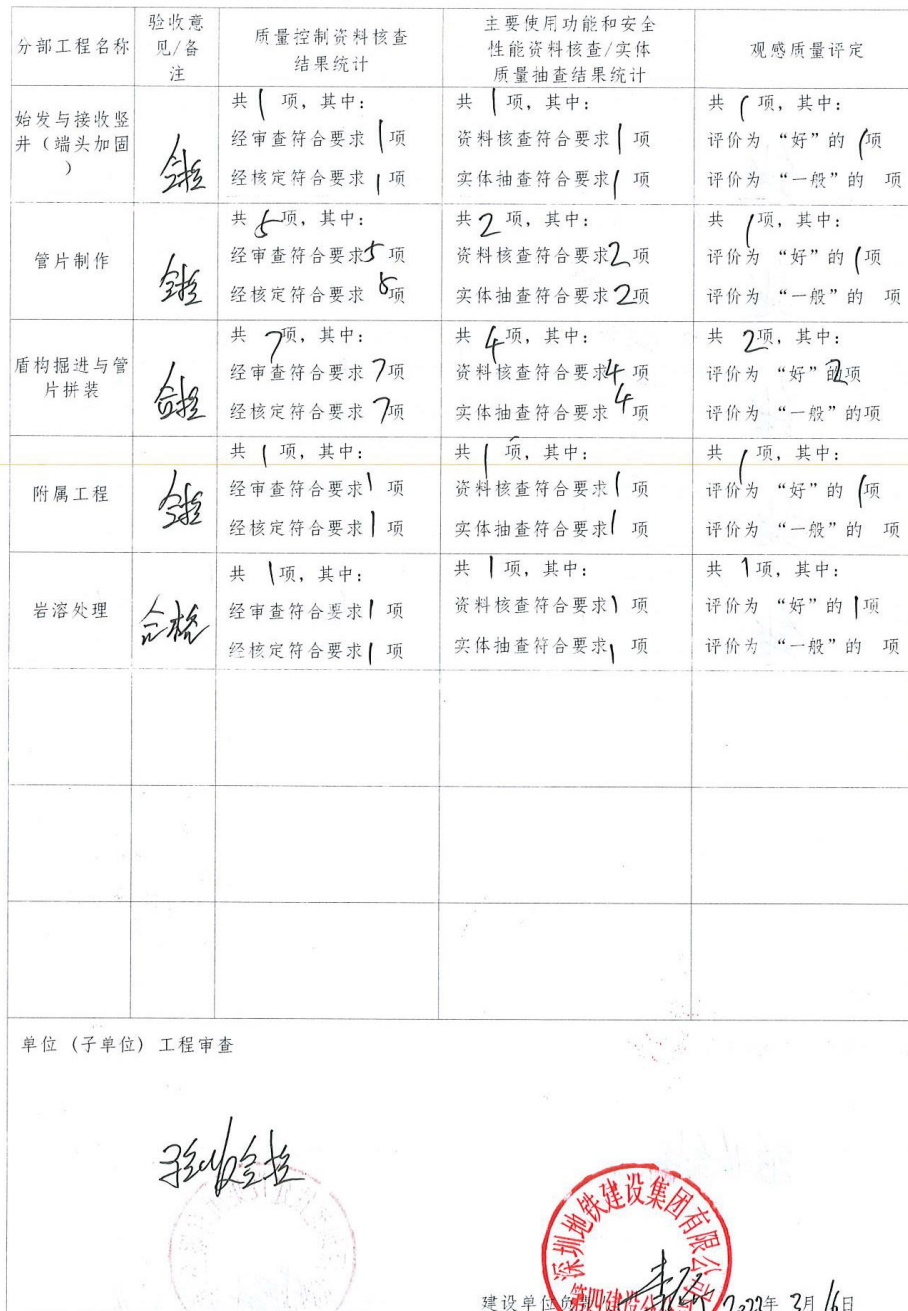 分部工程名称
验收意
见/备
注
质量控制资料核查
结果统计
主要使用功能和安全
性能资料核查/实体
质量抽查结果统计
观感质量评定
始发与接收竖
井（端头加固
）
合格
共 1 项，其中：
经审查符合要求 1 项
经核定符合要求 1 项
共 1 项，其中：
资料核查符合要求 1 项
实体抽查符合要求 1 项
共 1 项，其中：
评价为 “好”的 1 项
评价为 “一般”的 项
管片制作
合格
共 5 项，其中：
经审查符合要求 5 项
经核定符合要求 5 项
共 2 项，其中：
资料核查符合要求 2 项
实体抽查符合要求 2 项
共 1 项，其中：
评价为 “好”的 1 项
评价为 “一般”的 项
盾构掘进与管
片拼装
合格
共 7 项，其中：
经审查符合要求 7 项
经核定符合要求 7 项
共 4 项，其中：
资料核查符合要求 4 项
实体抽查符合要求 4 项
共 2 项，其中：
评价为 “好”的 2 项
评价为 “一般”的项
附属工程
合格
共 1 项，其中：
经审查符合要求 1 项
经核定符合要求 1 项
共 1 项，其中：
资料核查符合要求 1 项
实体抽查符合要求 1 项
共 1 项，其中：
评价为 “好”的 1 项
评价为 “一般”的 项
岩溶处理
合格
共 1 项，其中：
经审查符合要求 1 项
经核定符合要求 1 项
共 1 项，其中：
资料核查符合要求 1 项
实体抽查符合要求 1 项
共 1 项，其中：
评价为 “好”的 1 项
评价为 “一般”的 项
单位（子单位）工程审查
验收合格
深圳地铁建设集团有限公司
第四建设分公司
建设单位负 2022年 3月 16日